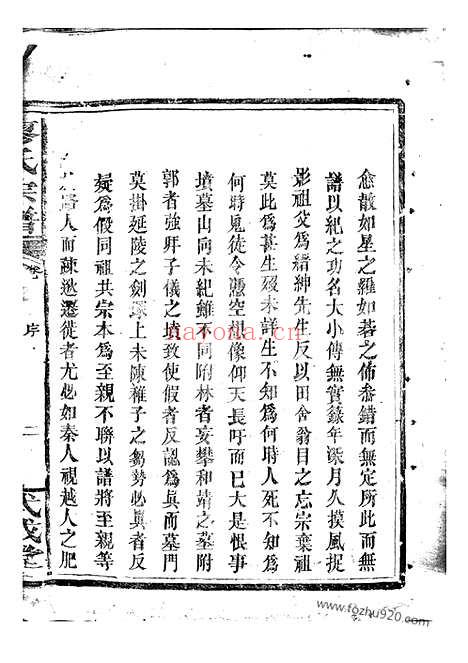 愈散如星之羅如碁之佈叅錯而無定所此而無
譜以紀之功名大小傳無實錄年深月久摸風捉
影祖父爲縉紳先生反以田舍翁目之忘宗棄祖
莫此爲甚生歿未詳生不知爲何時人死不知爲
何時鬼徒令憑空想像仰天長吁而已大是恨事
墳墓山向未紀難不同附林者妄攀和靖之墓附
郭者強拜子儀之墳致使假者反認爲眞而墓門
莫掛延陵之劍塚上未陳稚子之芻勢必眞者反
疑爲假同祖共宗本爲至親不聯以譜將至親等
路人而疎逖遷徙者尤必如秦人視越人之肥
廖氏宗譜
序
二
武威堂
nayona.cn
www.fozhu920.com